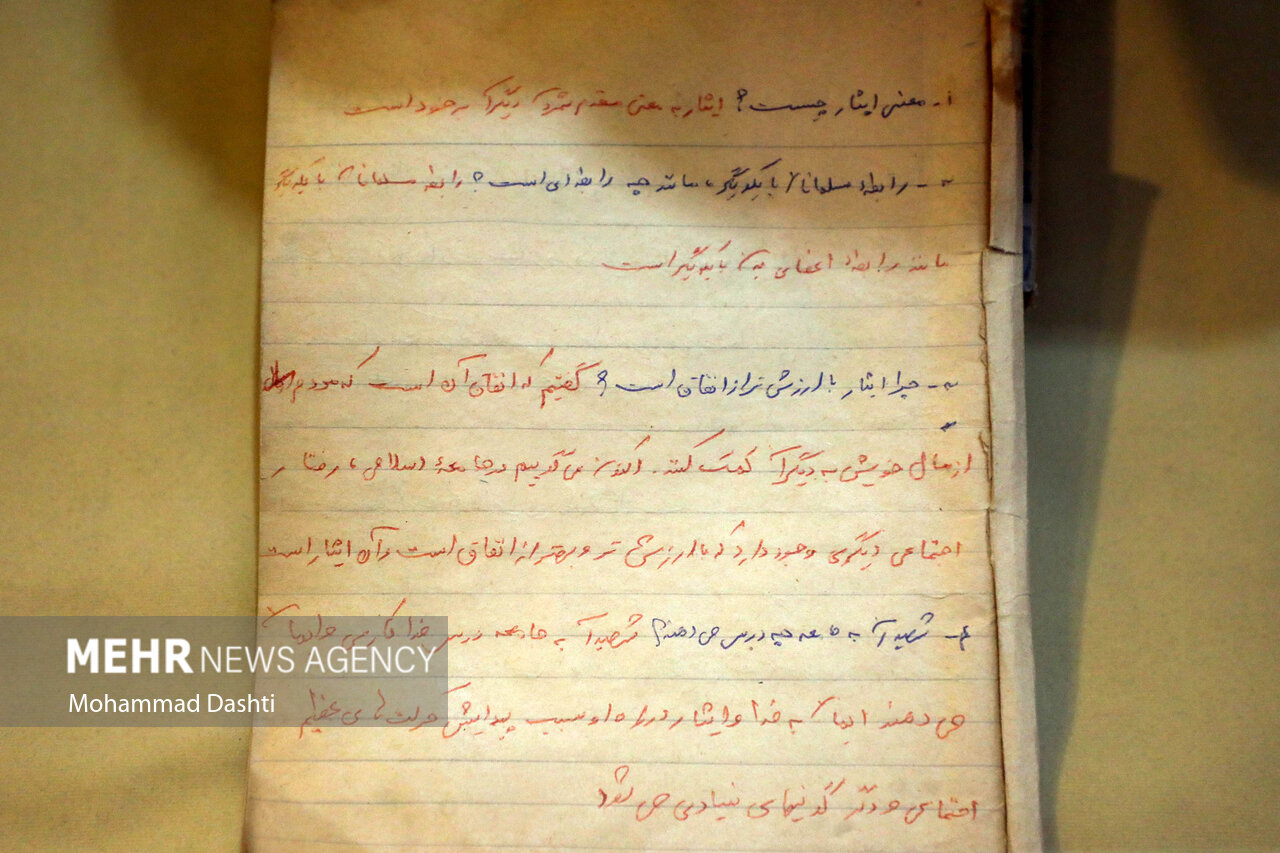 ۱- معنی ایثار چیست؟ ایثار به معنی مقدم شمردن دیگران بر خود است
۲- رابطهٔ مسلمانان با یکدیگر، مانند چه رابطه‌ای است؟ رابطه مسلمانان با یکدیگر
مانند رابطهٔ اعضای بدن با یکدیگر است
۳- چرا ایثار با ارزش تر از انفاق است؟ گفتیم که انفاق آن است که مردم
از مال خویش به دیگران کمک کنند. اکنون می گوییم در جامعهٔ اسلامی، رفتار
اجتماعی دیگری وجود دارد که با ارزش تر و برتر از انفاق است و آن ایثار است
۴- شهیدان به جامعه چه درس می دهند؟ شهیدان به جامعه درس فداکاری و ایمان
می دهند ایمان به خدا و ایثار در راه او سبب پیدایش حرکت های عظیم
اجتماعی و دگرگونیهای بنیادی می شود
MEHR NEWS AGENCY
Mohammad Dashti